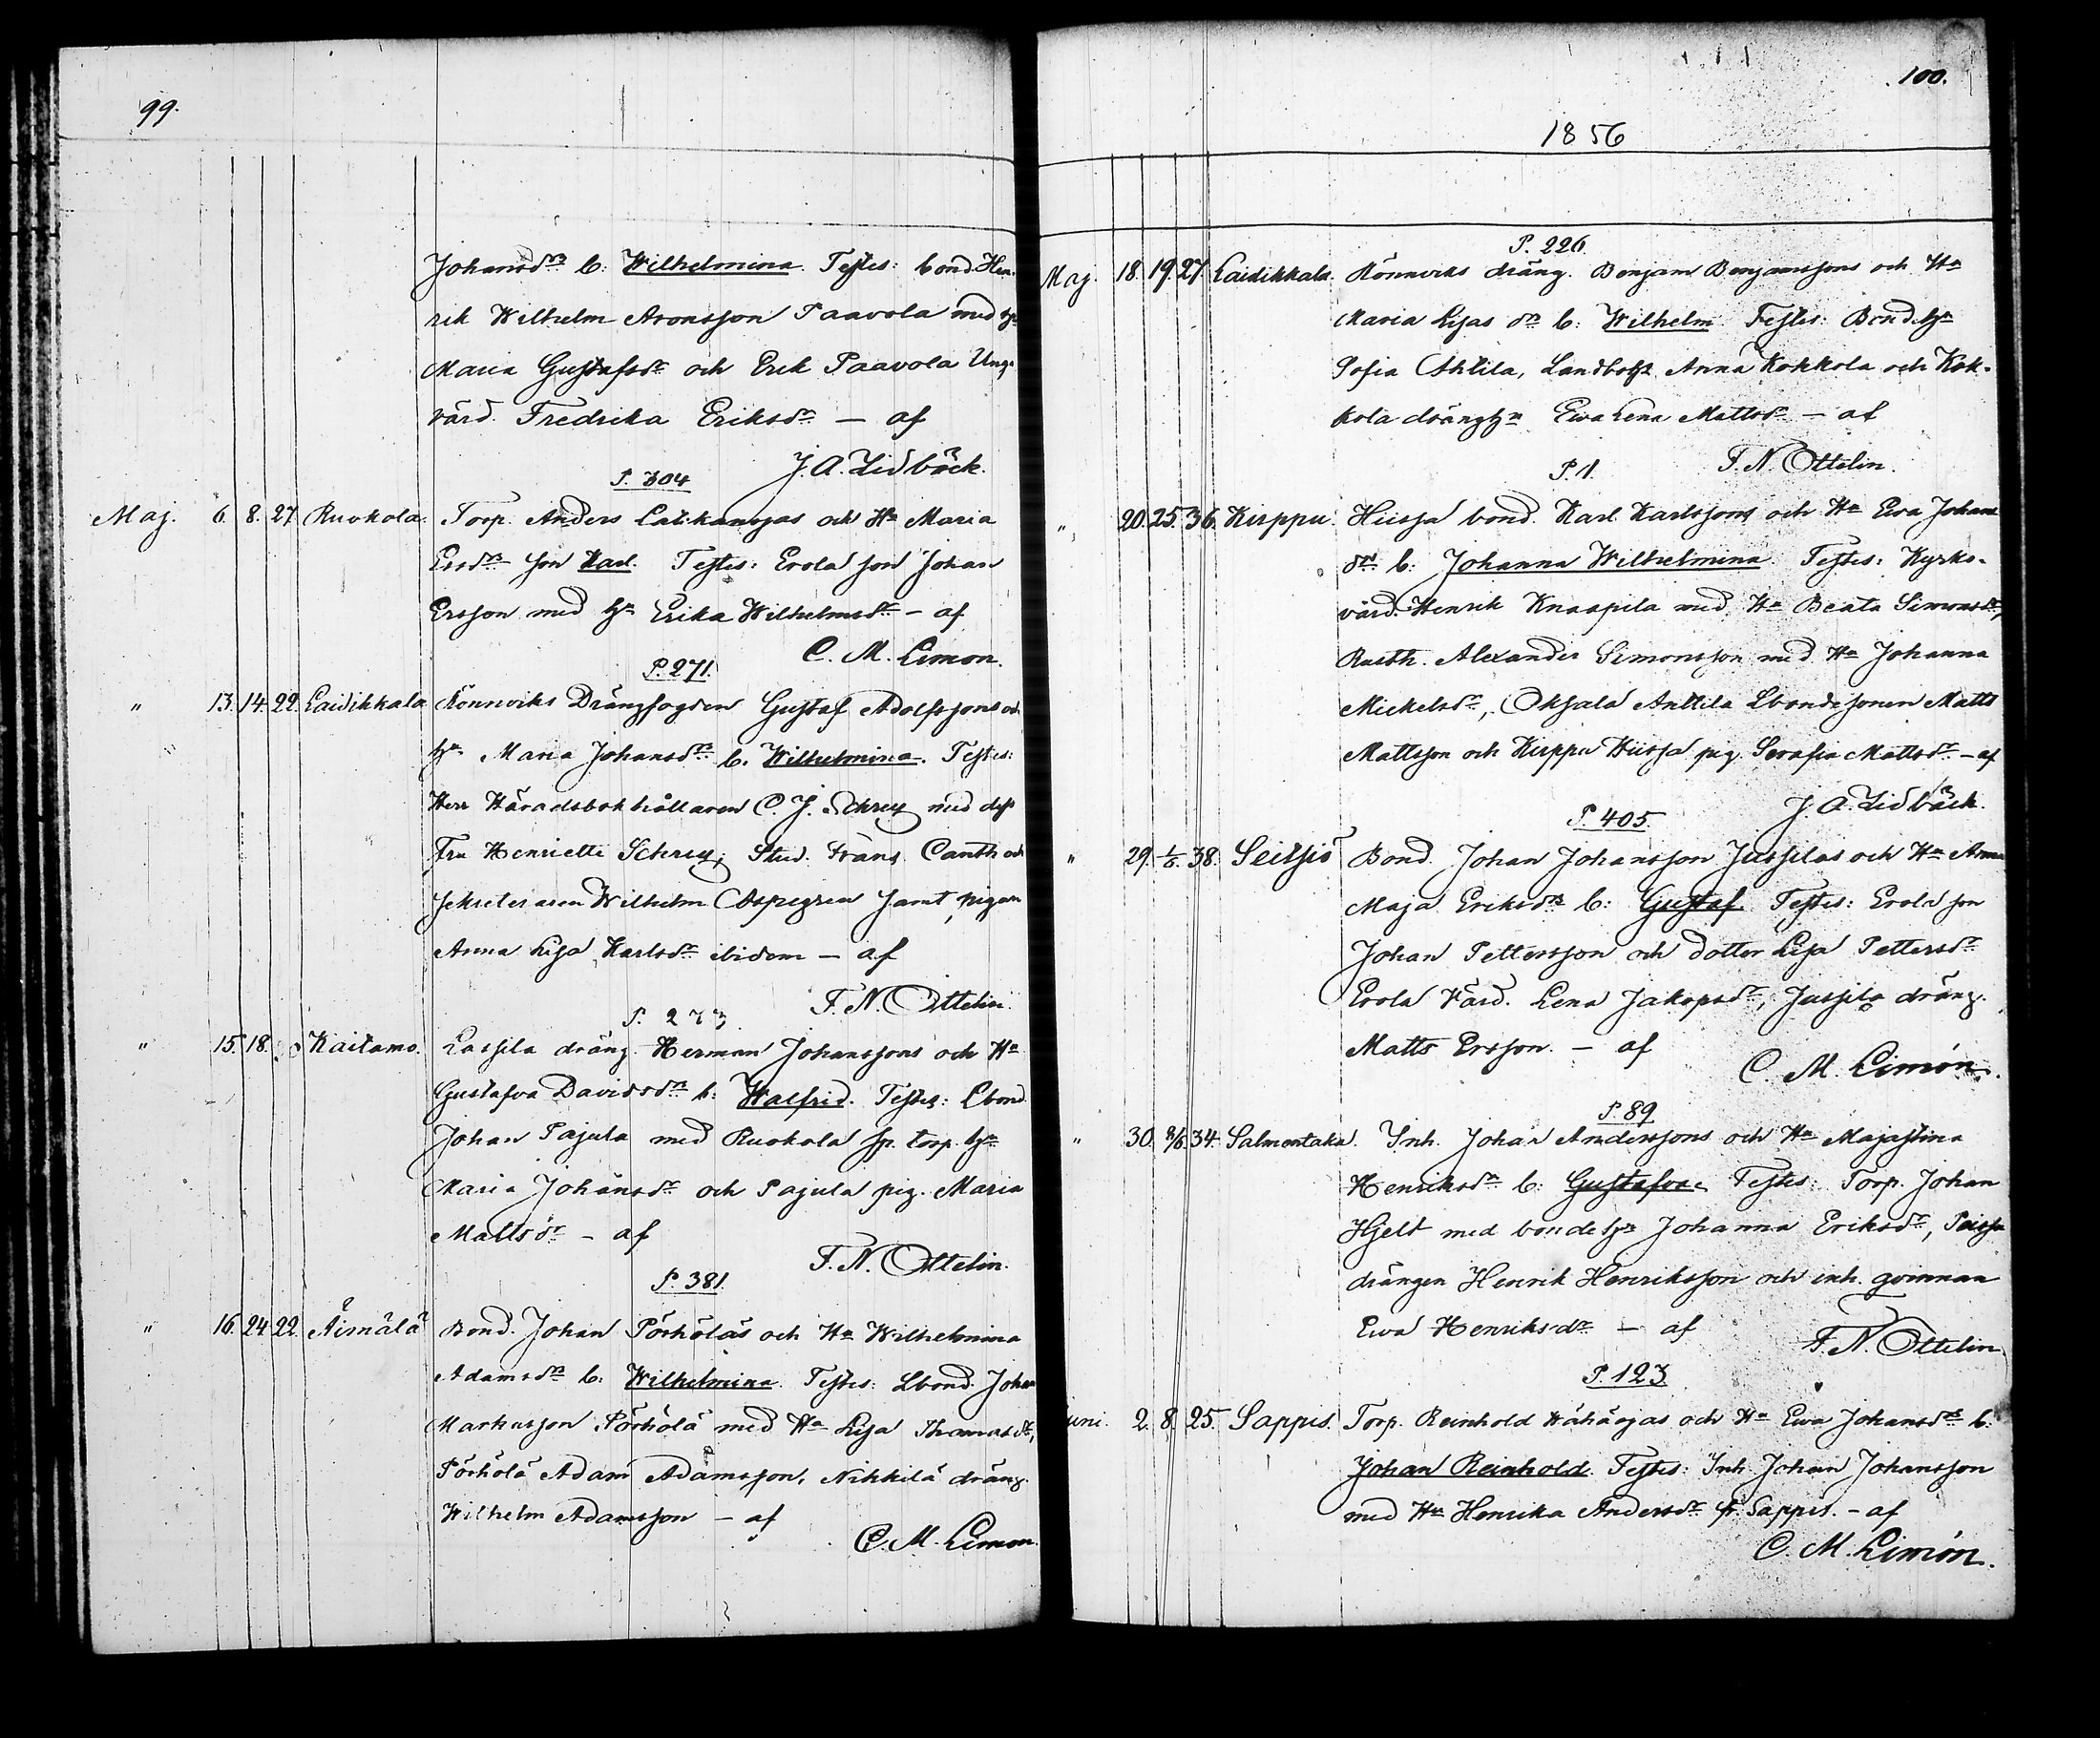 99.
Johansdrs b: Wilhelmina. Testes: bond. Hen-
rik Wilhelm Aronsson Paavola med h:
Maria Gustafsdr och Erik Paavola Ung-
värd. Fredrika Eriksdr — af
J. A. Lidbäck.
P. 304
Maj. 6. 8. 27. Ruokola. Torp. Anders Latikansjas och Ha Maria
Ersdrs son Karl. Testes: Erola son Johan
Ersson med ha Erika Wilhelmsdr — af
C. M. Limon.
P. 271.
" 13. 14. 22. Laidikkala Rönnviks Drängfogden Gustaf Adolfssons och
ha Maria Johansdrs b. Wilhelmina. Testes:
Herr Häradsbokhållaren C. J. Schrey med dess
Fru Henriette Schrey; Stud. Frans Canth och
sekreteraren Wilhelm Aspegren samt pigan
Anna Lisa Karlsdr ibidem — af
F. N. Ottelin.
P. 273
" 15. 18. Kaitamo. Lassila dräng. Herman Johanssons och Ha
Gustafva Davidsdrs b: Walfrid. Testes: Lbond.
Johan Pajula med Ruokola sp. torp. ha
Maria Johansdr och Pajula pig. Maria
Mattsdr — af
F. N. Ottelin.
P. 381.
" 16. 24. 22. Äimälä Bond. Johan Pörhöläs och Ha Wilhelmina
Adamsdrs b: Wilhelmina. Testes: Lbond. Johan
Markusson Pörhölä med Ha Lisa Thomasdr,
Pörhölä Adam Adamsson, Nikkilä dräng.
Wilhelm Adamsson — af
C. M. Limon.
100.
1856
P. 226.
Maj. 18. 19. 27. Laidikkala. Rönnviks dräng. Benjam Benjamssons och Ha
Maria Lisas dr b: Wilhelm. Testes: Bondeha
Sofia Ahlila, Landboha Anna Kokkola och Kok-
kola drängha Ewa Lena Mattsdr — af
F. N. Ottelin.
P. 1.
" 20. 25. 36. Kirppu. Hiissa bond. Karl Karlssons och Ha Ewa Johans
drs b: Johanna Wilhelmina. Testes: Kyrko-
värd. Henrik Knaapila med Ha Beata Simonsdr,
Rusth. Alexander Simonsson med Ha Johanna
Mickelsdr, Oksala Anttila Lbondesonen Matts
Mattsson och Kirppu Hiissa pig. Serafia Mattsdr — af
J. A. Lidbäck.
P. 405.
" 29. 1/6. 38. Seitsiö Bond. Johan Johansson Jussilas och Ha Anna
Maja Eriksdrs b: Gustaf. Testes: Erola son
Johan Pettersson och dotter Lisa Pettersdr
Erola Värd. Lena Jakopsdr, Jussila dräng.
Matts Ersson. — af
C. M. Limón.
P. 89
" 30. 8/6. 34. Salmentaka. Inh. Johan Anderssons och Ha Majastina
Henriksdrs b: Gustafva. Testes: Torp. Johan
Hjelt med bondeha Johanna Eriksdr,
drängen Henrik Henriksson och inh. qvinnan
Ewa Henriksdr — af
F. N. Ottelin
P. 123.
uni. 2. 8. 25. Sappis. Torp. Reinhold Hähäojas och Ha Ewa Johansdrs b.
Johan Reinhold. Testes: Inh. Johan Johansson
med Ha Henrika Andersdr fr. Sappis. — af
C. M. Limón.